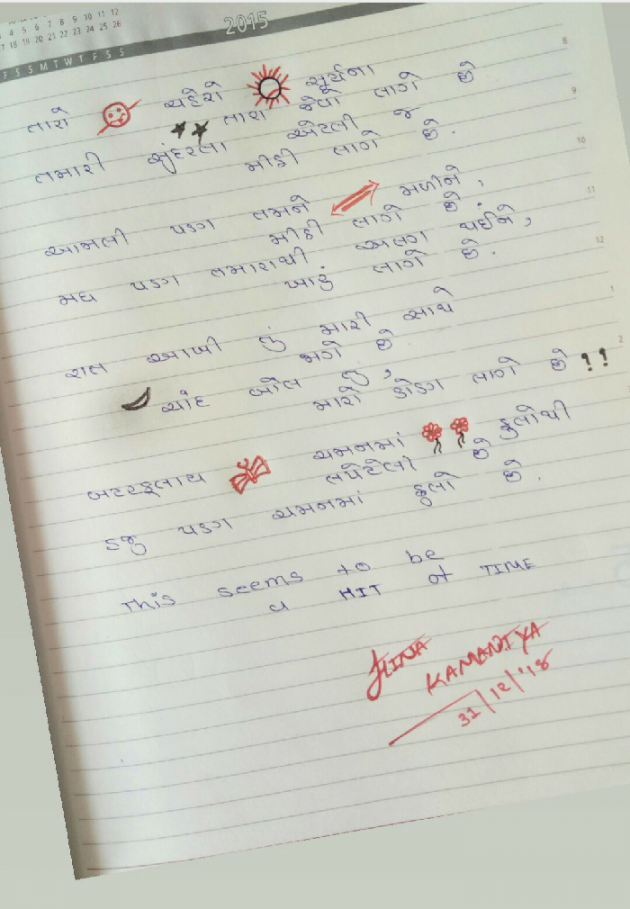 4 5 6 7 8 9 10 11 12
17 18 19 20 21 22 23 24 25 26
F S S M T W T F S S
2015
તારો ચહેરો સૂર્યના
તારા જેવો લાગે છે
તમારી સુંદરતા એટલી જ
મીઠી લાગે છે.
આમલી પણ તમને મળીને,
મીઠી લાગે છે.
મધ પણ તમારાથી અલગ થઈને,
ખાટું લાગે છે.
રાત આખી તું મારી સાથે
જાગે છે
ચાંદ બોલે તું,
મારો કોણ લાગે છે !!
બટરફ્લાય ચમનમાં ફુલોથી
લપેટેલી છે
હજુ પણ ચમનમાં ફુલો છે.
This seems to be
a HIT of TIME
JLINA
KAMANIYA
31/12/'18
8
9
10
11
12
1
2